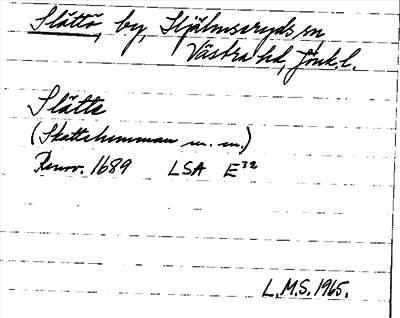 Slättö, by, Hjälmseryds sn
Västra hd, Jönk.l.
Slätte
(Skattehemman m.m.)
Renov. 1689 LSA E³²
L.M.S. 1965.